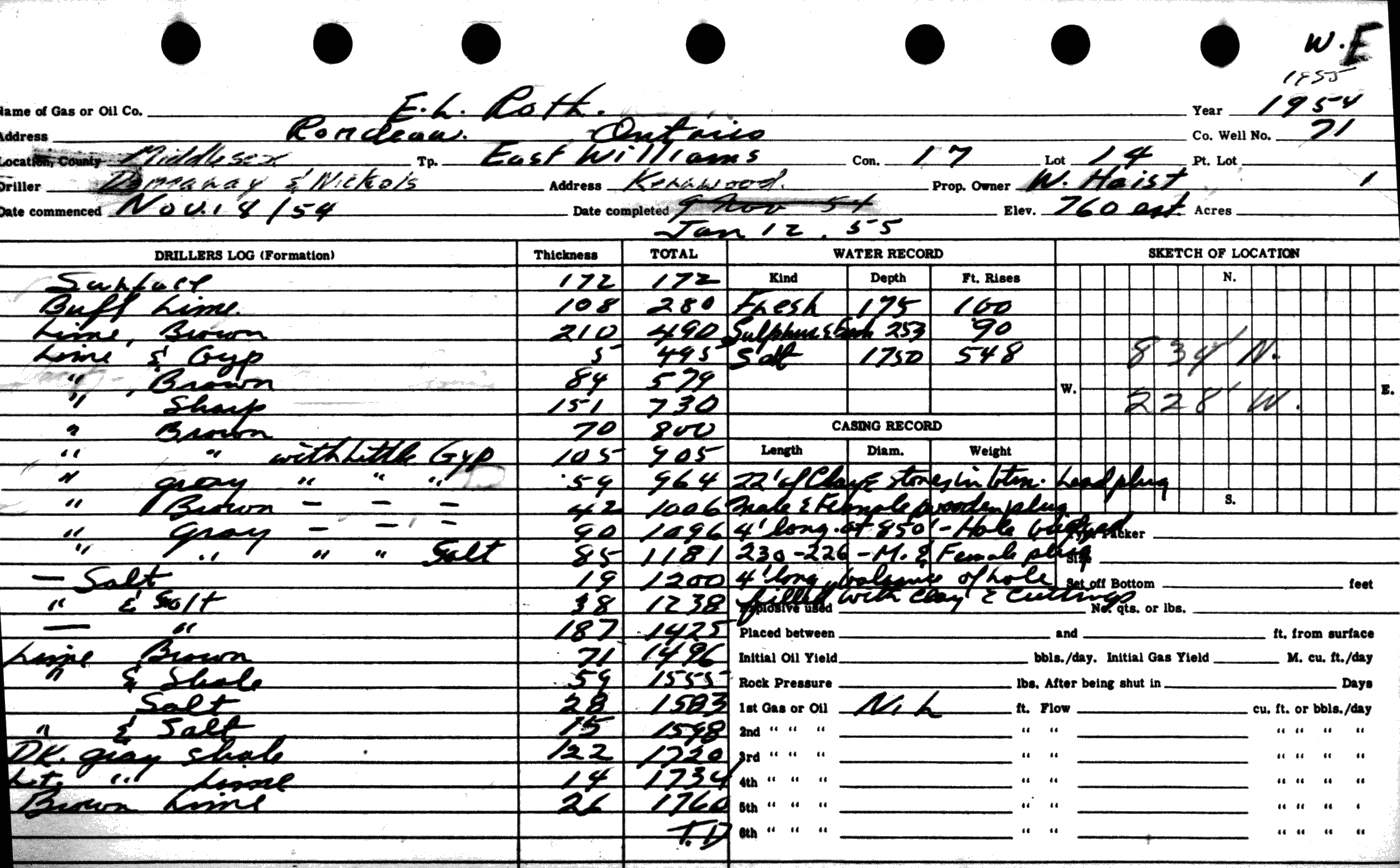 W.E
1955
Name of Gas or Oil Co. E.L. Roth. Year 1954
Address Rondeau. Ontario Co. Well No. 71
Location, County Middlesex Tp. East Williams Con. 17 Lot 14 Pt. Lot
Driller & Nichols Address Kerwood. Prop. Owner W. Haist 1
Date commenced Nov. 18/54 Date completed 9 Nov 54 Elev. 760 est. Acres
Jan 12. 55
DRILLERS LOG (Formation) Thickness TOTAL WATER RECORD SKETCH OF LOCATION
Surface 172 172 Kind Depth Ft. Rises N.
Buff Lime. 108 280 Fresh 175 100
Lime, Brown 210 490 Sulphur & 253 90
Lime & Gyp 5 495 Salt 1750 548 834' N.
" , Brown 84 579 W. E.
" Sharp 151 730 228' W.
" Brown 70 800 CASING RECORD
" " with Little Gyp 105 905 Length Diam. Weight
" gray " " " 59 964 22' of Clay & stones in btm. Lead plug
" Brown - - - 42 1006 Male & Female wooden plug S.
" gray - - - 90 1096 4' long. at 850' - Hole Packer
" " " " Salt 85 1181 230-226 - M. & Female plug Size
— Salt 19 1200 4' long, balance of hole Set off Bottom feet
" & Salt 38 1238 filled with Clay & Cuttings
Explosive used No. qts. or lbs.
— " 187 1425 Placed between and ft. from surface
Lime Brown 71 1496 Initial Oil Yield bbls./day. Initial Gas Yield M. cu. ft./day
" & Shale 59 1555 Rock Pressure lbs. After being shut in Days
Salt 28 1583 1st Gas or Oil Nil ft. Flow cu. ft. or bbls./day
" & Salt 15 1598 2nd " " " " " " " " "
DK. gray shale 122 1720 3rd " " " " " " " " "
Lt. " Lime 14 1734 4th " " " " " " " " "
Brown Lime 26 1760 5th " " " " " " " " '
T.D 6th " " " " " " " " "